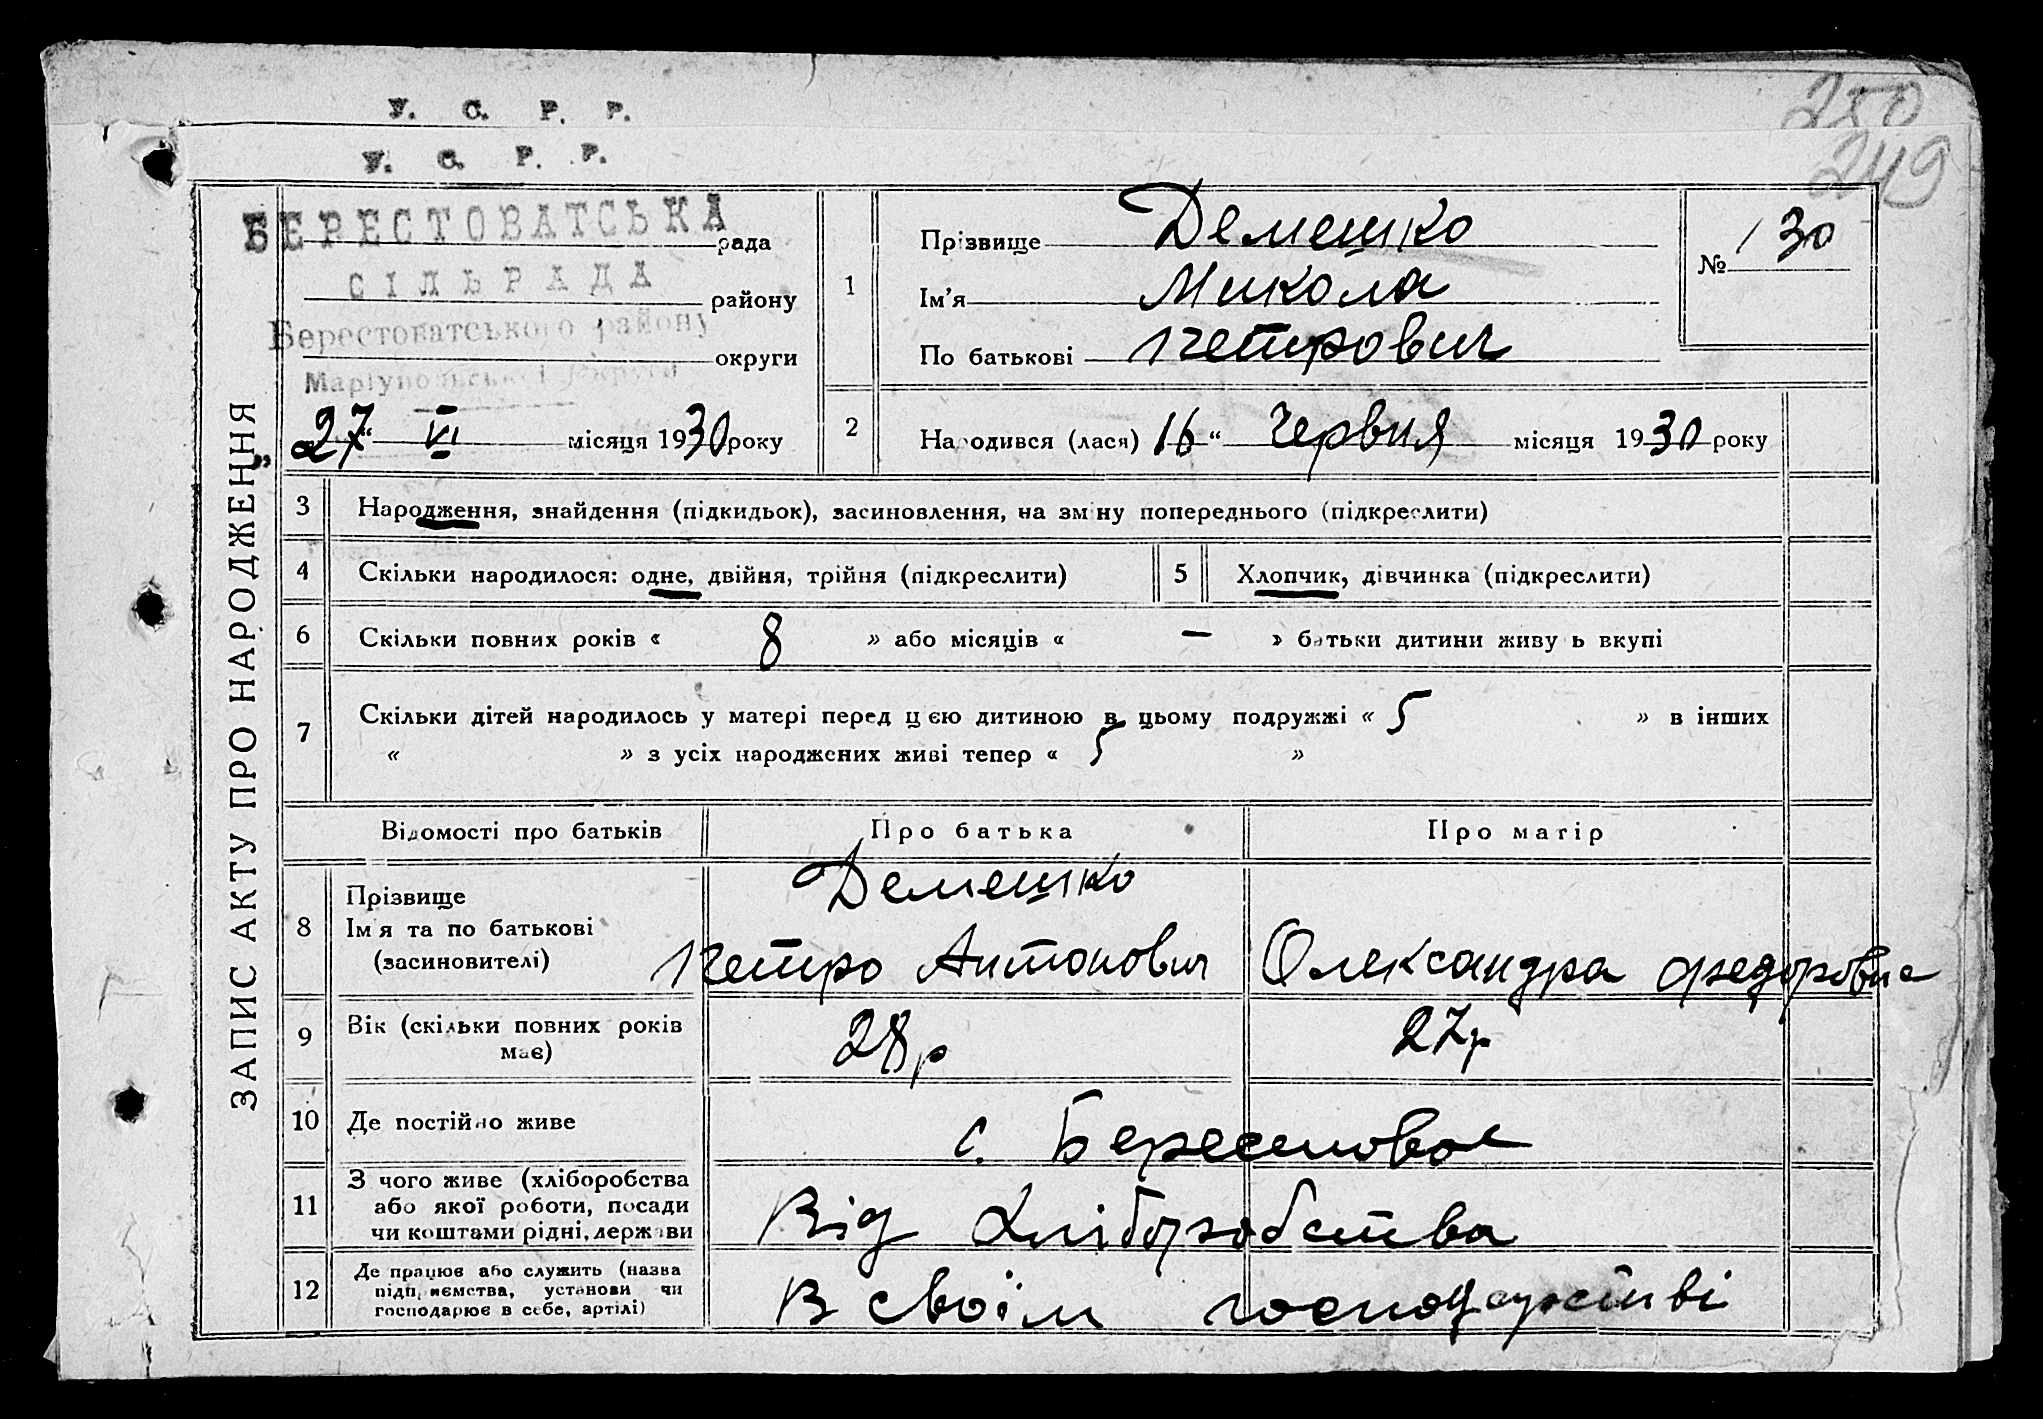 250
У. С. Р. Р.
249
У. С. Р. Р.
ЗАПИС АКТУ ПРО НАРОДЖЕННЯ
БЕРЕСТОВАТСЬКА рада
СІЛЬРАДА району
Берестоватського району
округи
Маріупольської округи
„27“ VI місяця 1930 року
1
Прізвище Демешко
Ім'я Микола
По батькові Петрович
№ 130
2
Народився (лася) 16 “ Червня місяця 1930 року
3 Народження, знайдення (підкидьок), засиновлення, на зміну попереднього (підкреслити)
4 Скільки народилося: одне, двійня, трійня (підкреслити)
5 Хлопчик, дівчинка (підкреслити)
6 Скільки повних років « 8 » або місяців « — » батьки дитини живуть вкупі
7 Скільки дітей народилось у матері перед цією дитиною в цьому подружжі « 5 » в інших
« » з усіх народжених живі тепер « 5 »
Відомості про батьків Про батька Про матір
8 Прізвище
Ім'я та по батькові
(засиновителі)
Демешко
Петро Антонович Олександра
9 Вік (скільки повних років
має)
28р 27р
10 Де постійно живе
с. Берестовое
11 З чого живе (хліборобства
або якої роботи, посади
чи коштами рідні, держави
Від Хліборобства
12 Де працює або служить (назва
підприємства, установи чи
господарює в себе, артілі)
В своїм господарстві